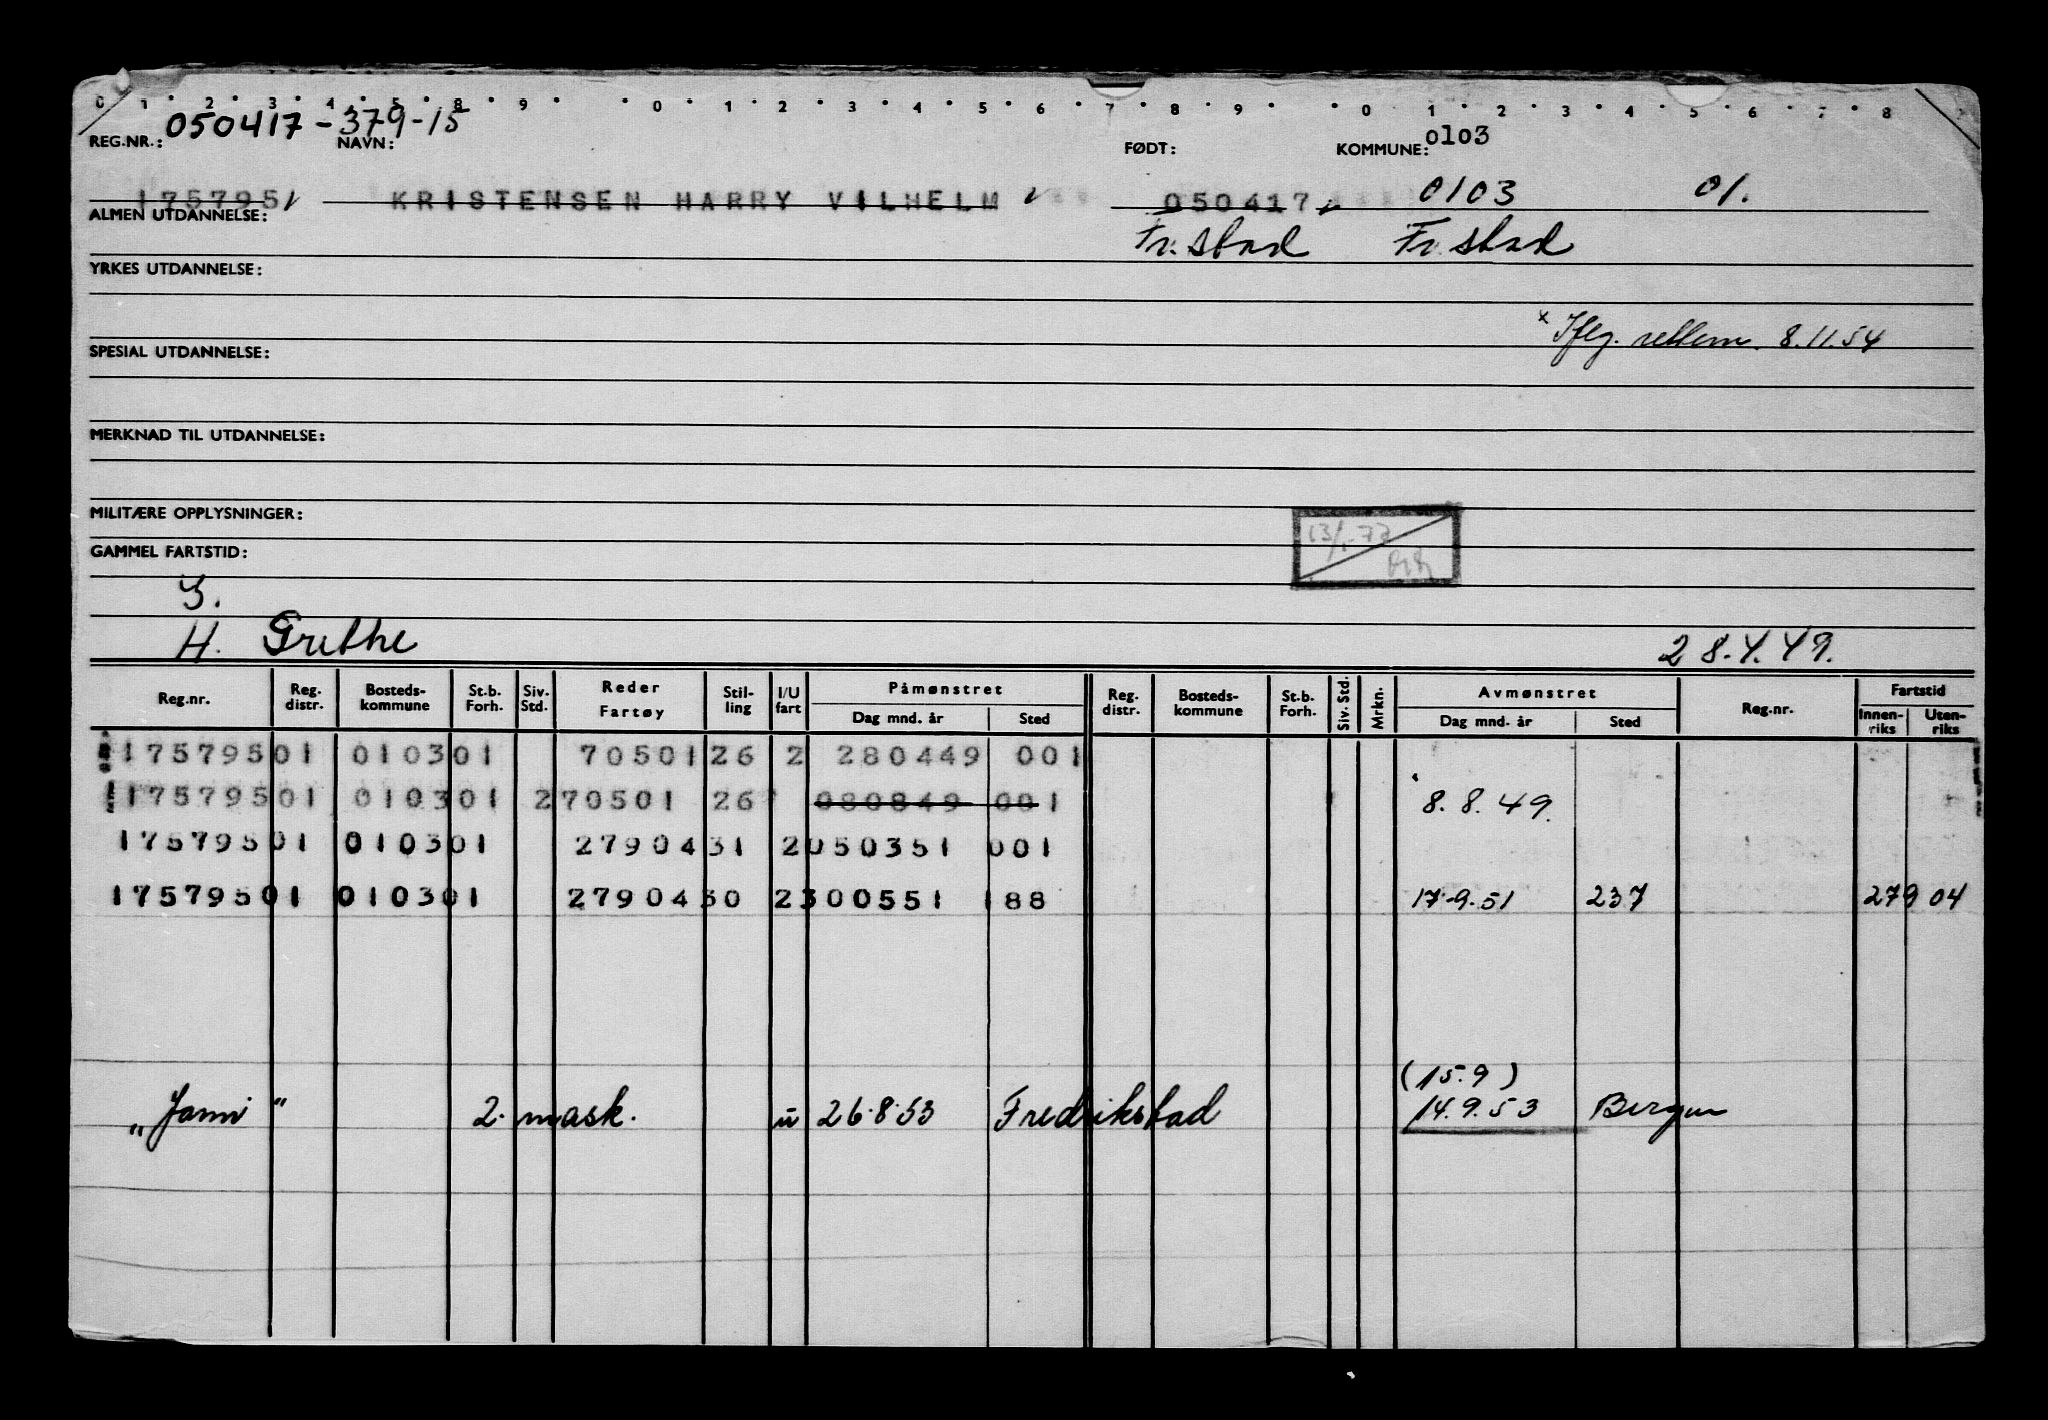 0 1 2 3 4 5 8 9 0 1 2 3 4 5 6 7 8 9 0 1 2 3 4 5 6 7 8
REG.NR.: 050417-379-15 NAVN: FØDT: KOMMUNE: 0103
175795 KRISTENSEN HARRY VILHELM 050417 0103 01.
ALMEN UTDANNELSE: Fr.stad Fr.stad
YRKES UTDANNELSE:
8.11.54
SPESIAL UTDANNELSE:
MERKNAD TIL UTDANNELSE:
MILITÆRE OPPLYSNINGER:
GAMMEL FARTSTID:
S.
H. Grethe 28.4.49.
Reg.nr. Reg. distr. Bosteds-kommune St.b. Forh. Siv. Std. Reder Fartøy Stil-ling I/U fart Påmønstret Dag mnd. år Sted Reg. distr. Bosteds-kommune St.b. Forh. Siv. Std. Mrkn. Avmønstret Dag mnd. år Sted Reg.nr. Fartstid Innen-riks Uten-riks
17579501 010301 70501 26 2 280449 001
17579501 010301 270501 26 080849 001 8.8.49.
17579501 010301 2790431 2050351 001
17579501 010301 2790430 2300551 188 17.9.51 237 279 04
(15.9)
„Janni" 2. mask. u 26.8.53 Fredrikstad 14.9.53 Bergen